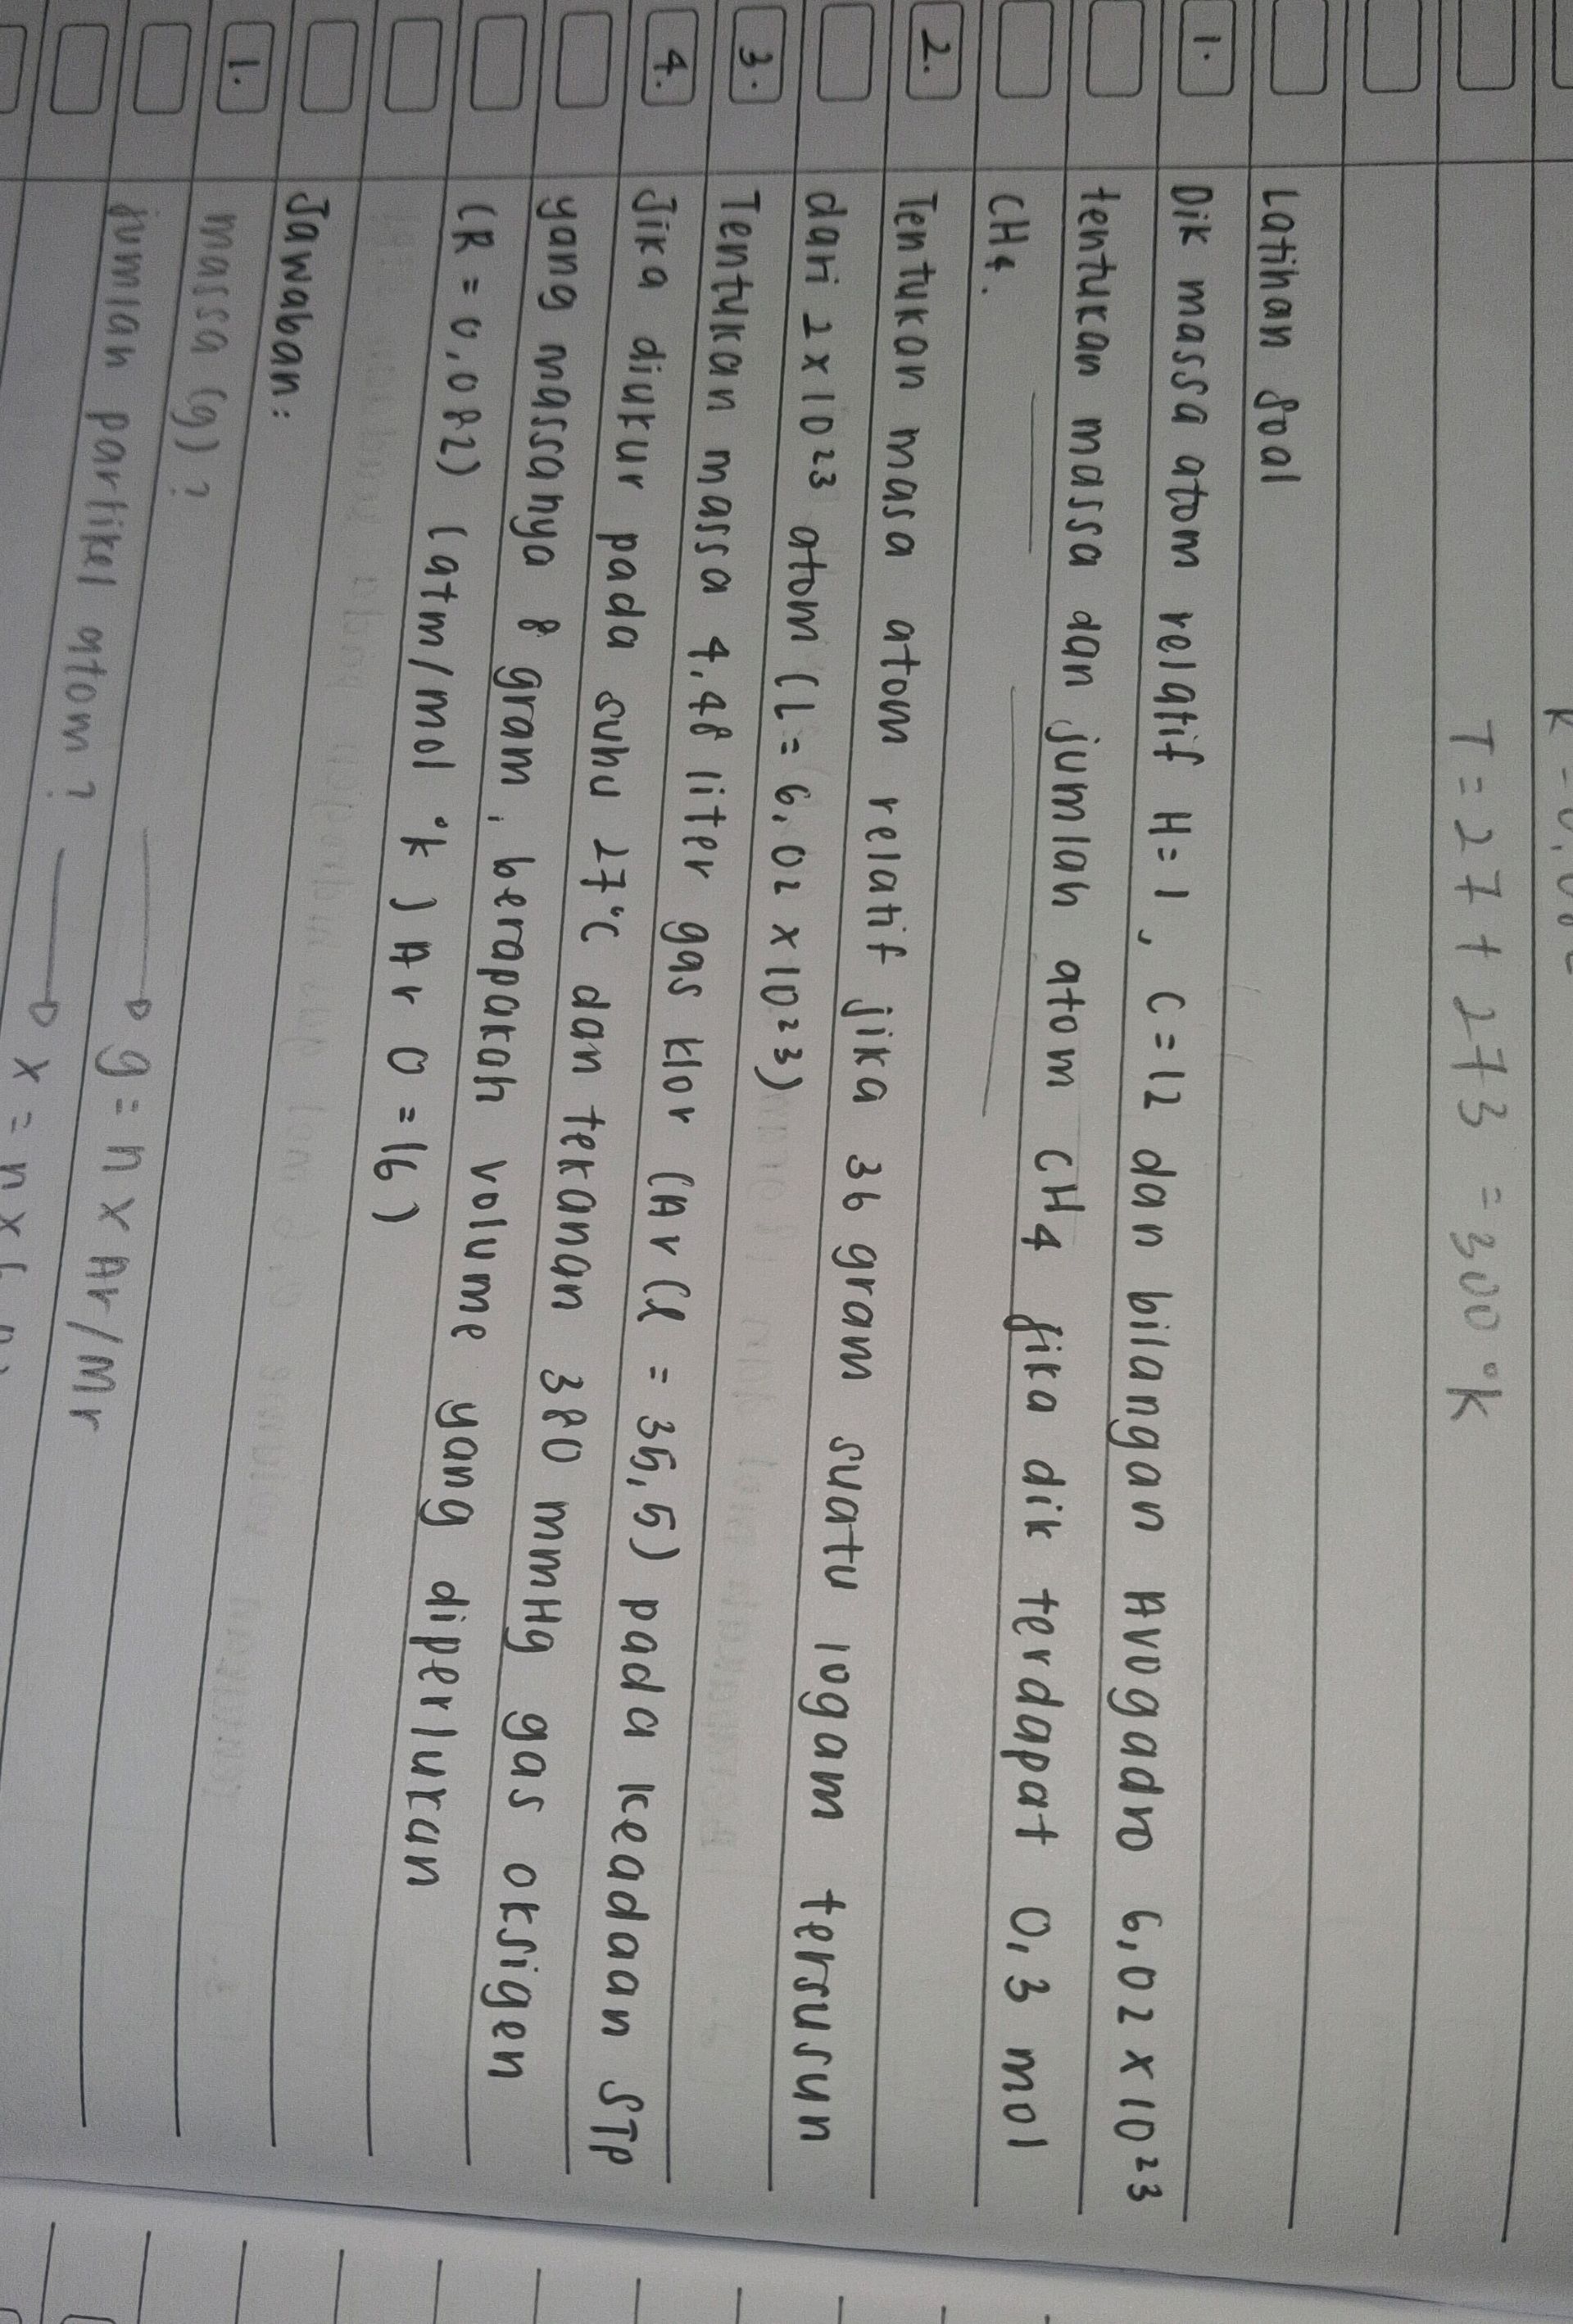 T = 27 + 273 = 300 °K
Latihan soal
1. Dik massa atom relatif H = 1, C = 12 dan bilangan Avogadro 6,02 x 10²³
tentukan massa dan jumlah atom CH4 jika dik terdapat 0,3 mol
CH4.
2. Tentukan masa atom relatif jika 36 gram suatu logam tersusun
dari 2 x 10²³ atom (L = 6,02 x 10²³)
3. Tentukan massa 4,48 liter gas klor (Ar Cl = 35,5) pada keadaan STP
4. Jika diukur pada suhu 27°C dan tekanan 380 mmHg gas oksigen
yang massanya 8 gram, berapakah volume yang diperlukan
(R = 0,082) (atm/mol °k) Ar O = 16)
Jawaban:
1. massa (g) ? → g = n x Ar/Mr
jumlah partikel atom ? → x = n x